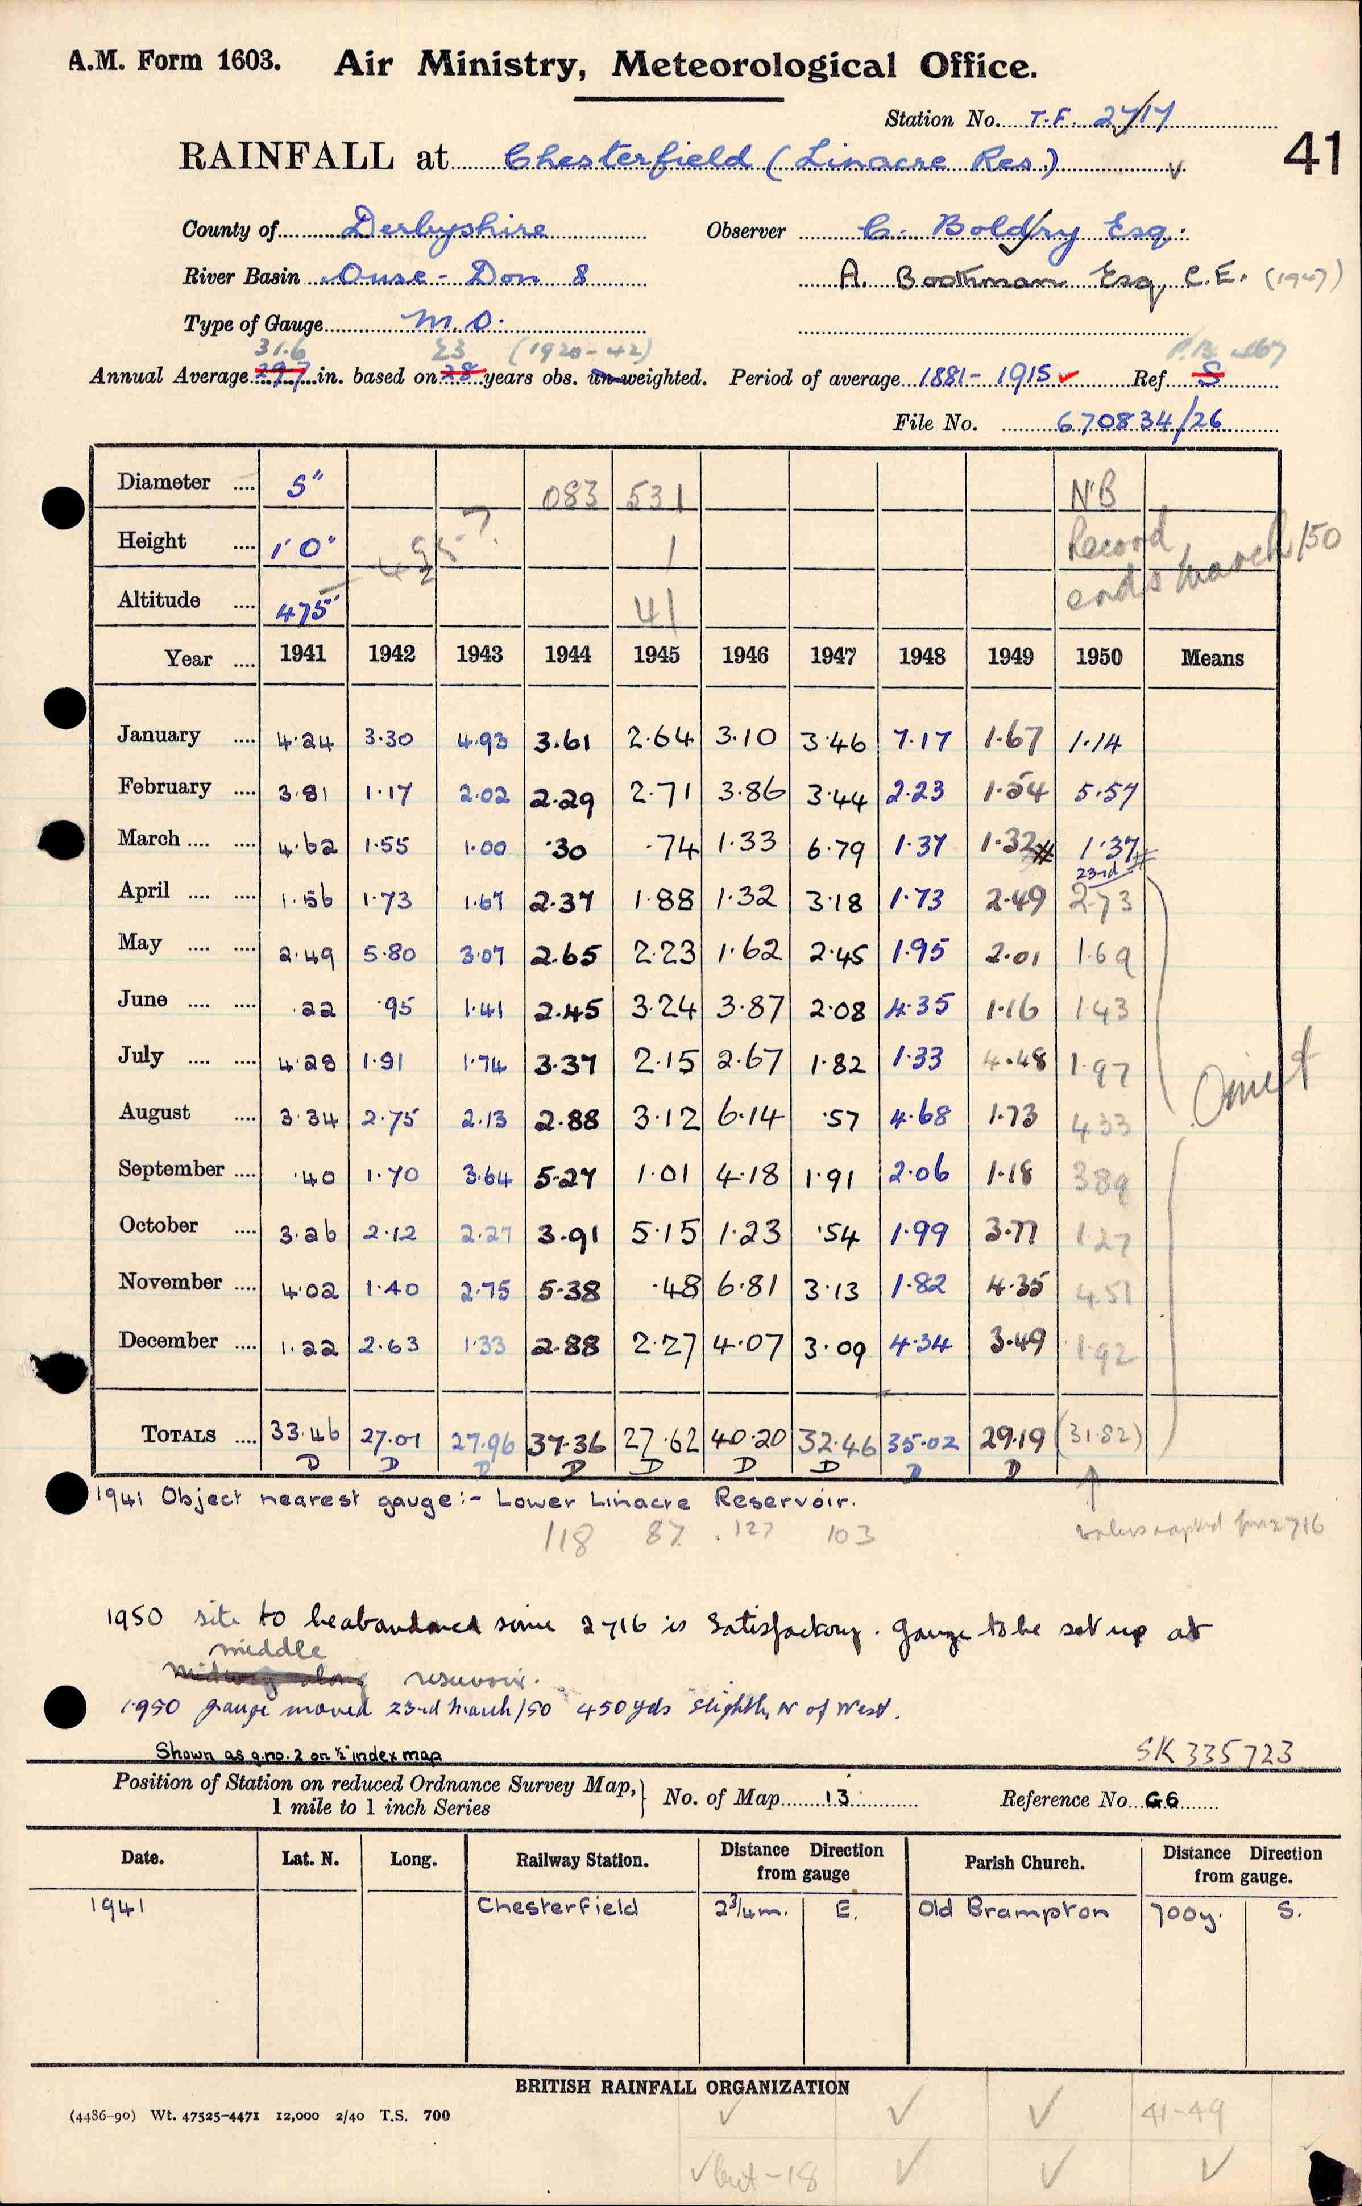 A.M. Form 1603. Air Ministry, Meteorological Office.
Station No. T.F. 2717
RAINFALL at Chesterfield (Linacre Res.) 41
County of Derbyshire Observer C. Boldry Esq.
River Basin Ouse - Don 8 A. Bookman Esq, C.E. (1947)
Type of Gauge M.O.
31.6 23 (1920-42)
Annual Average 29.7 in. based on 28 years obs. un-weighted. Period of average 1881-1915 ✓ Ref S
File No. 670834/26
Diameter .... 5" 083 531 NB
Height .... 1' 0" 1 Record
Altitude .... 475' 41 ends March/50
Year .... 1941 1942 1943 1944 1945 1946 1947 1948 1949 1950 Means
January .... 4.24 3.30 4.93 3.61 2.64 3.10 3.46 7.17 1.67 1.14
February .... 3.81 1.17 2.02 2.29 2.71 3.86 3.44 2.23 1.54 5.57
March .... .... 4.62 1.55 1.00 .30 .74 1.33 6.79 1.37 1.32# 1.37#
23rd
April .... .... 1.56 1.73 1.67 2.37 1.88 1.32 3.18 1.73 2.49 2.73
May .... .... 2.49 5.80 3.07 2.65 2.23 1.62 2.45 1.95 2.01 1.69
June .... .... .22 .95 1.41 2.45 3.24 3.87 2.08 4.35 1.16 1.43
July .... .... 4.28 1.91 1.74 3.37 2.15 2.67 1.82 1.33 4.48 1.97
Omit
August .... 3.34 2.75 2.13 2.88 3.12 6.14 .57 4.68 1.73 4.33
September .... .40 1.70 3.64 5.27 1.01 4.18 1.91 2.06 1.18 3.89
October .... 3.26 2.12 2.27 3.91 5.15 1.23 .54 1.99 3.77 1.27
November .... 4.02 1.40 2.75 5.38 .48 6.81 3.13 1.82 4.35 4.51
December .... 1.22 2.63 1.33 2.88 2.27 4.07 3.09 4.34 3.49 1.92
TOTALS .... 33.46 27.01 27.96 37.36 27.62 40.20 32.46 35.02 29.19 (31.82)
D D D D D D D D D
1941 Object nearest gauge:- Lower Linacre Reservoir.
118 87 127 103 2716
1950 site to be abandoned since 2716 is satisfactory. Gauge to be set up at
middle
midway along reservoir.
1950 gauge moved 23rd March/50 450 yds slightly N of West.
Shown as g.no. 2 on ½" index map SK 335723
Position of Station on reduced Ordnance Survey Map, 1 mile to 1 inch Series } No. of Map 13 Reference No. G6
Date. Lat. N. Long. Railway Station. Distance Direction from gauge Parish Church. Distance Direction from gauge.
1941 Chesterfield 2¾m. E. Old Brampton 700y. S.
BRITISH RAINFALL ORGANIZATION
(4486-90) Wt. 47525-4471 12,000 2/40 T.S. 700
✓ ✓ ✓ 41-49
✓ but -18 ✓ ✓ ✓